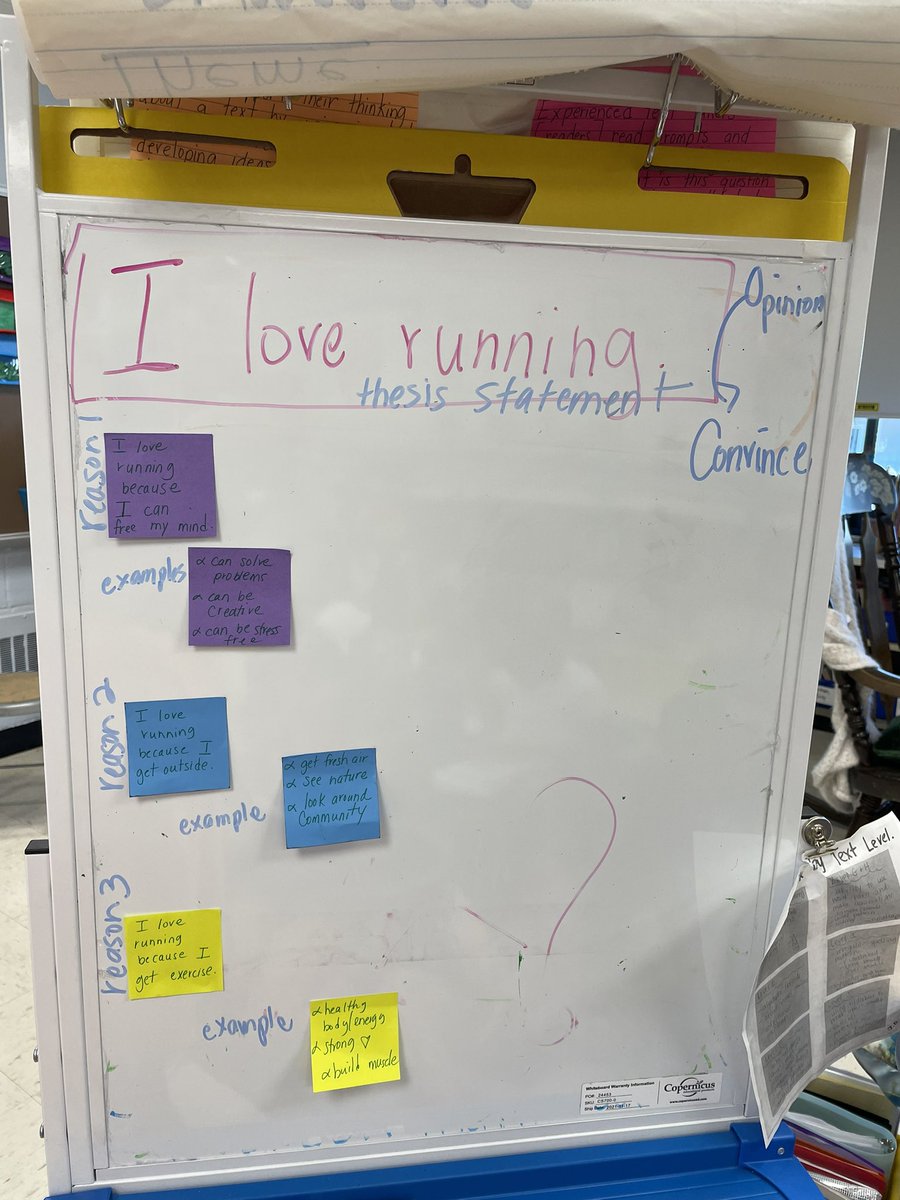 Theme
their thinking
about a text by
developing ideas
Experienced
readers read prompts and
is this question
I love running.
thesis statement
Opinion
Convince
reason 1
I love
running
because
I can
free my mind.
examples
can solve
problems
can be
creative
can be stress
free
reason 2
I love
running
because I
get outside.
example
get fresh air
see nature
look around
Community
reason 3
I love
running
because I
get exercise.
example
healthy
body/energy
strong ♡
build muscle
Text Level.
Whiteboard Warranty Information
PO# 24453
SKU
Ship Date
Copernicus